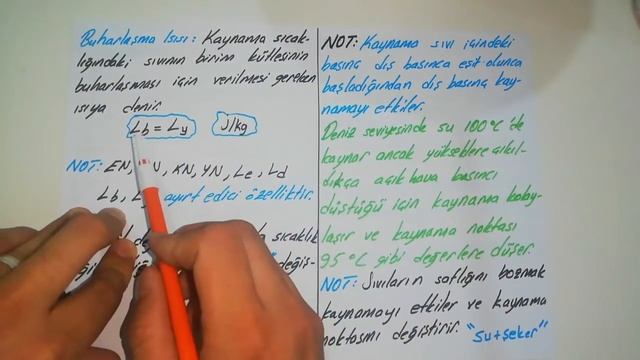 Buharlaşma Isısı: Kaynama sıcak-
lığındaki sıvının birim kütlesinin
buharlaşması için verilmesi gereken
ısıya denir.
Lb = Ly J/kg
NOT: EN, KN, YN, Le, Ld
Lb, ayırt edici özelliktir.
sıcaklık
değiş-
NOT: Kaynama sıvı içindeki
basınç dış basınca eşit olunca
başladığından dış basınç kay-
namayı etkiler.
Deniz seviyesinde su 100°C'de
kaynar ancak yükseklere çıkıl-
dıkça açık hava basıncı
düştüğü için kaynama kolay-
laşır ve kaynama noktası
95°C gibi değerlere düşer.
NOT: Sıvıların saflığını bozmak
kaynamayı etkiler ve kaynama
noktasını değiştirir. "Su+şeker"